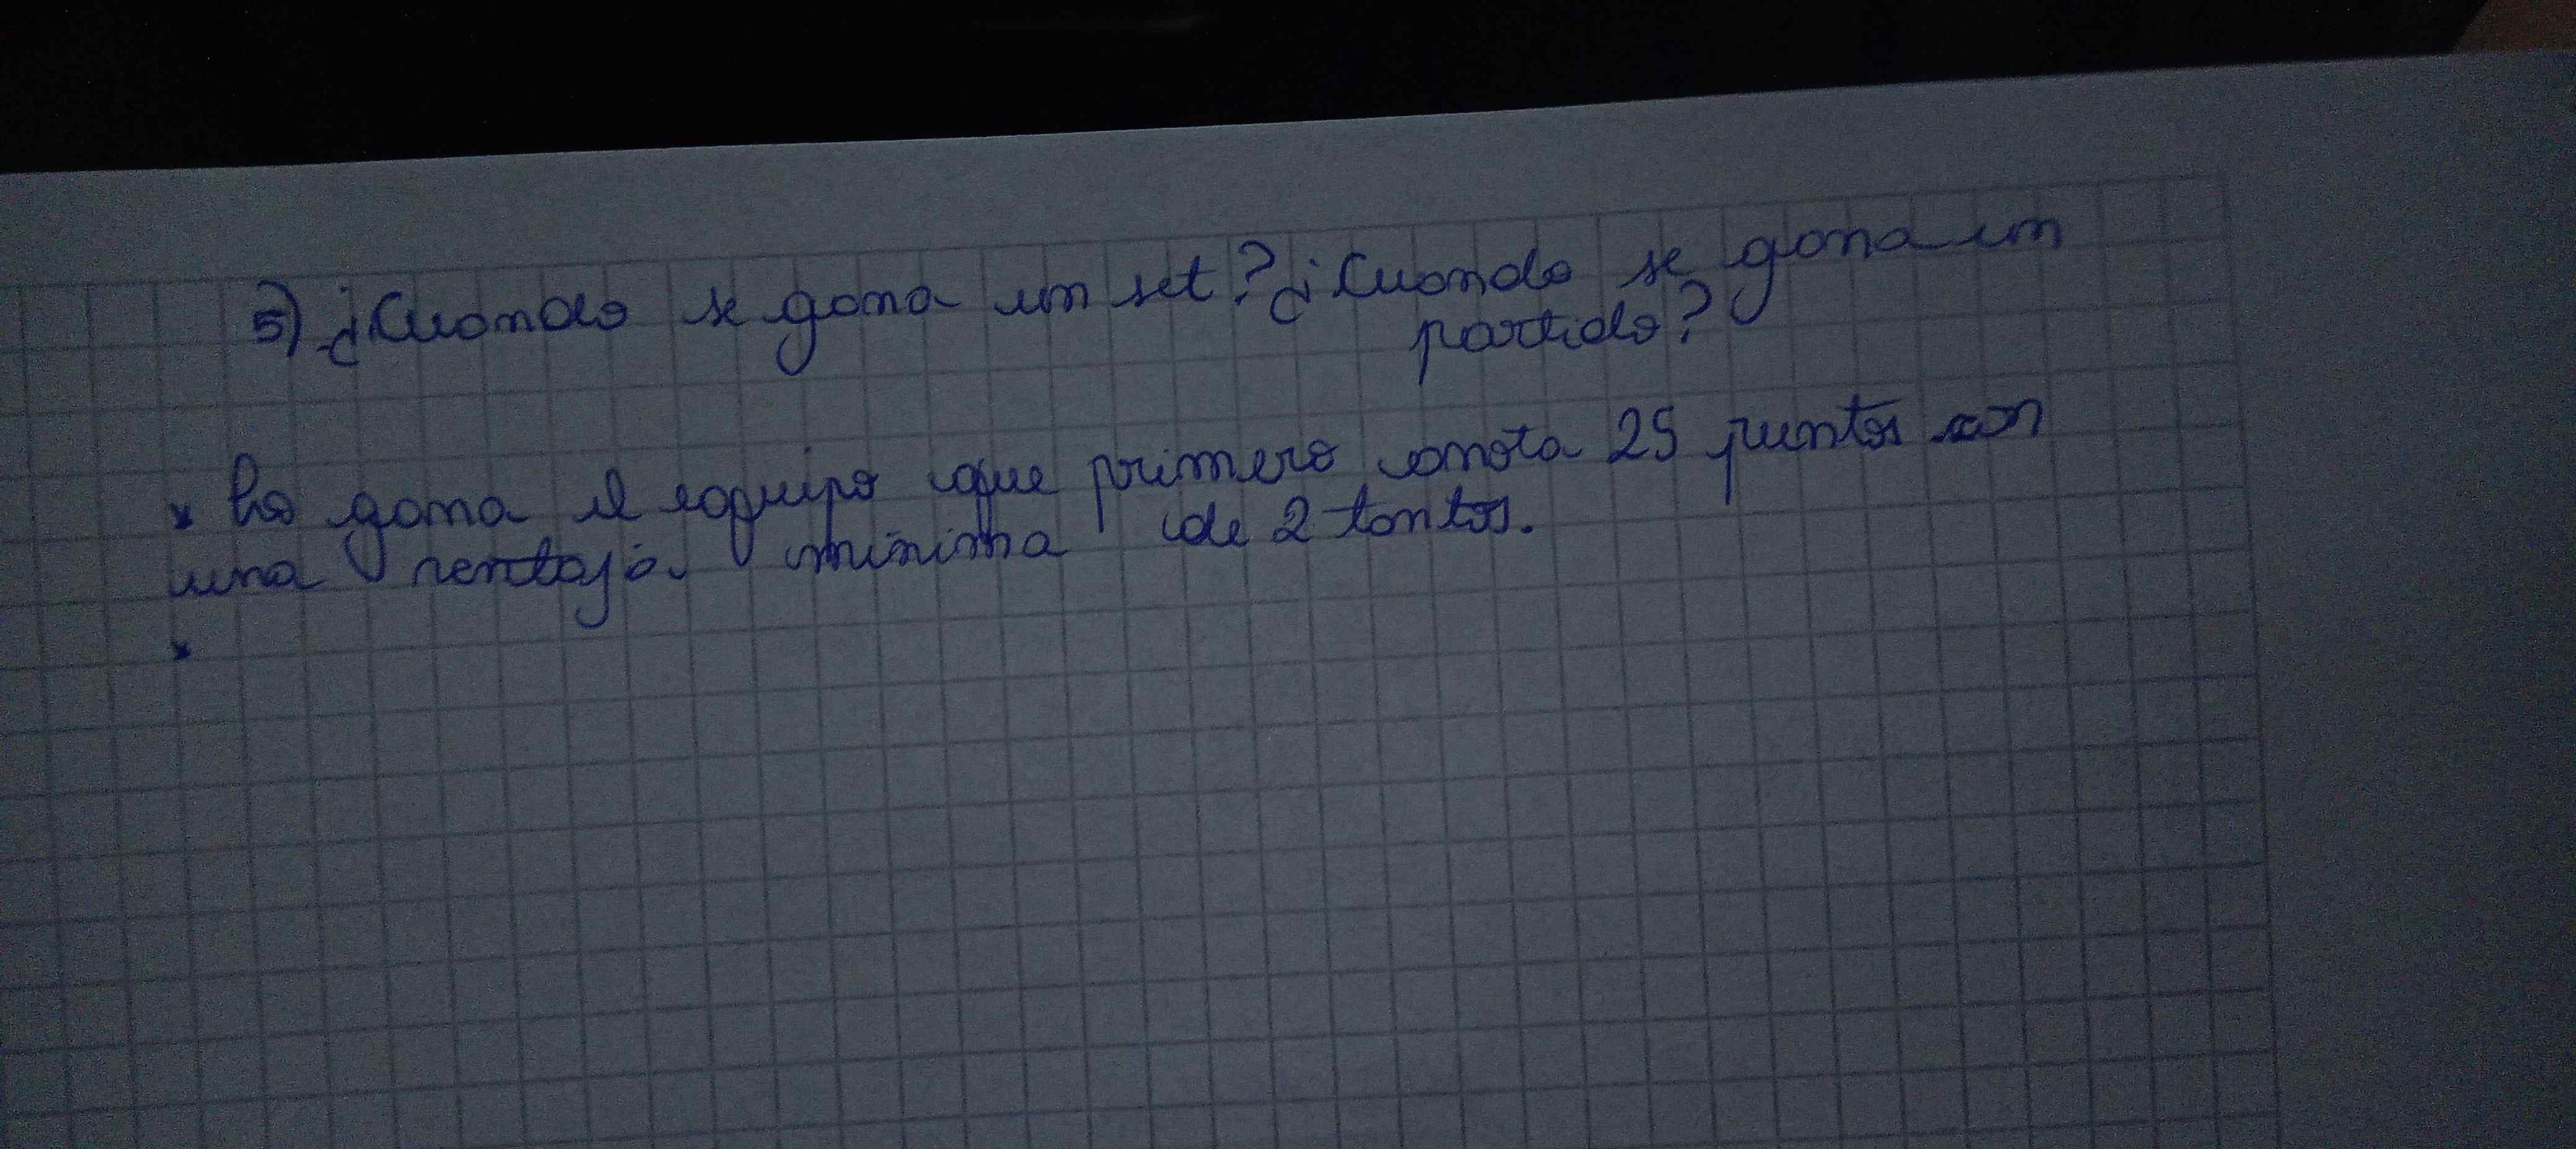 5) ¿Cuando se gana un set? ¿Cuando se gana un
partido?
* Lo gana el equipo que primero anota 25 puntos con
una ventaja mínima de 2 tantos.
*